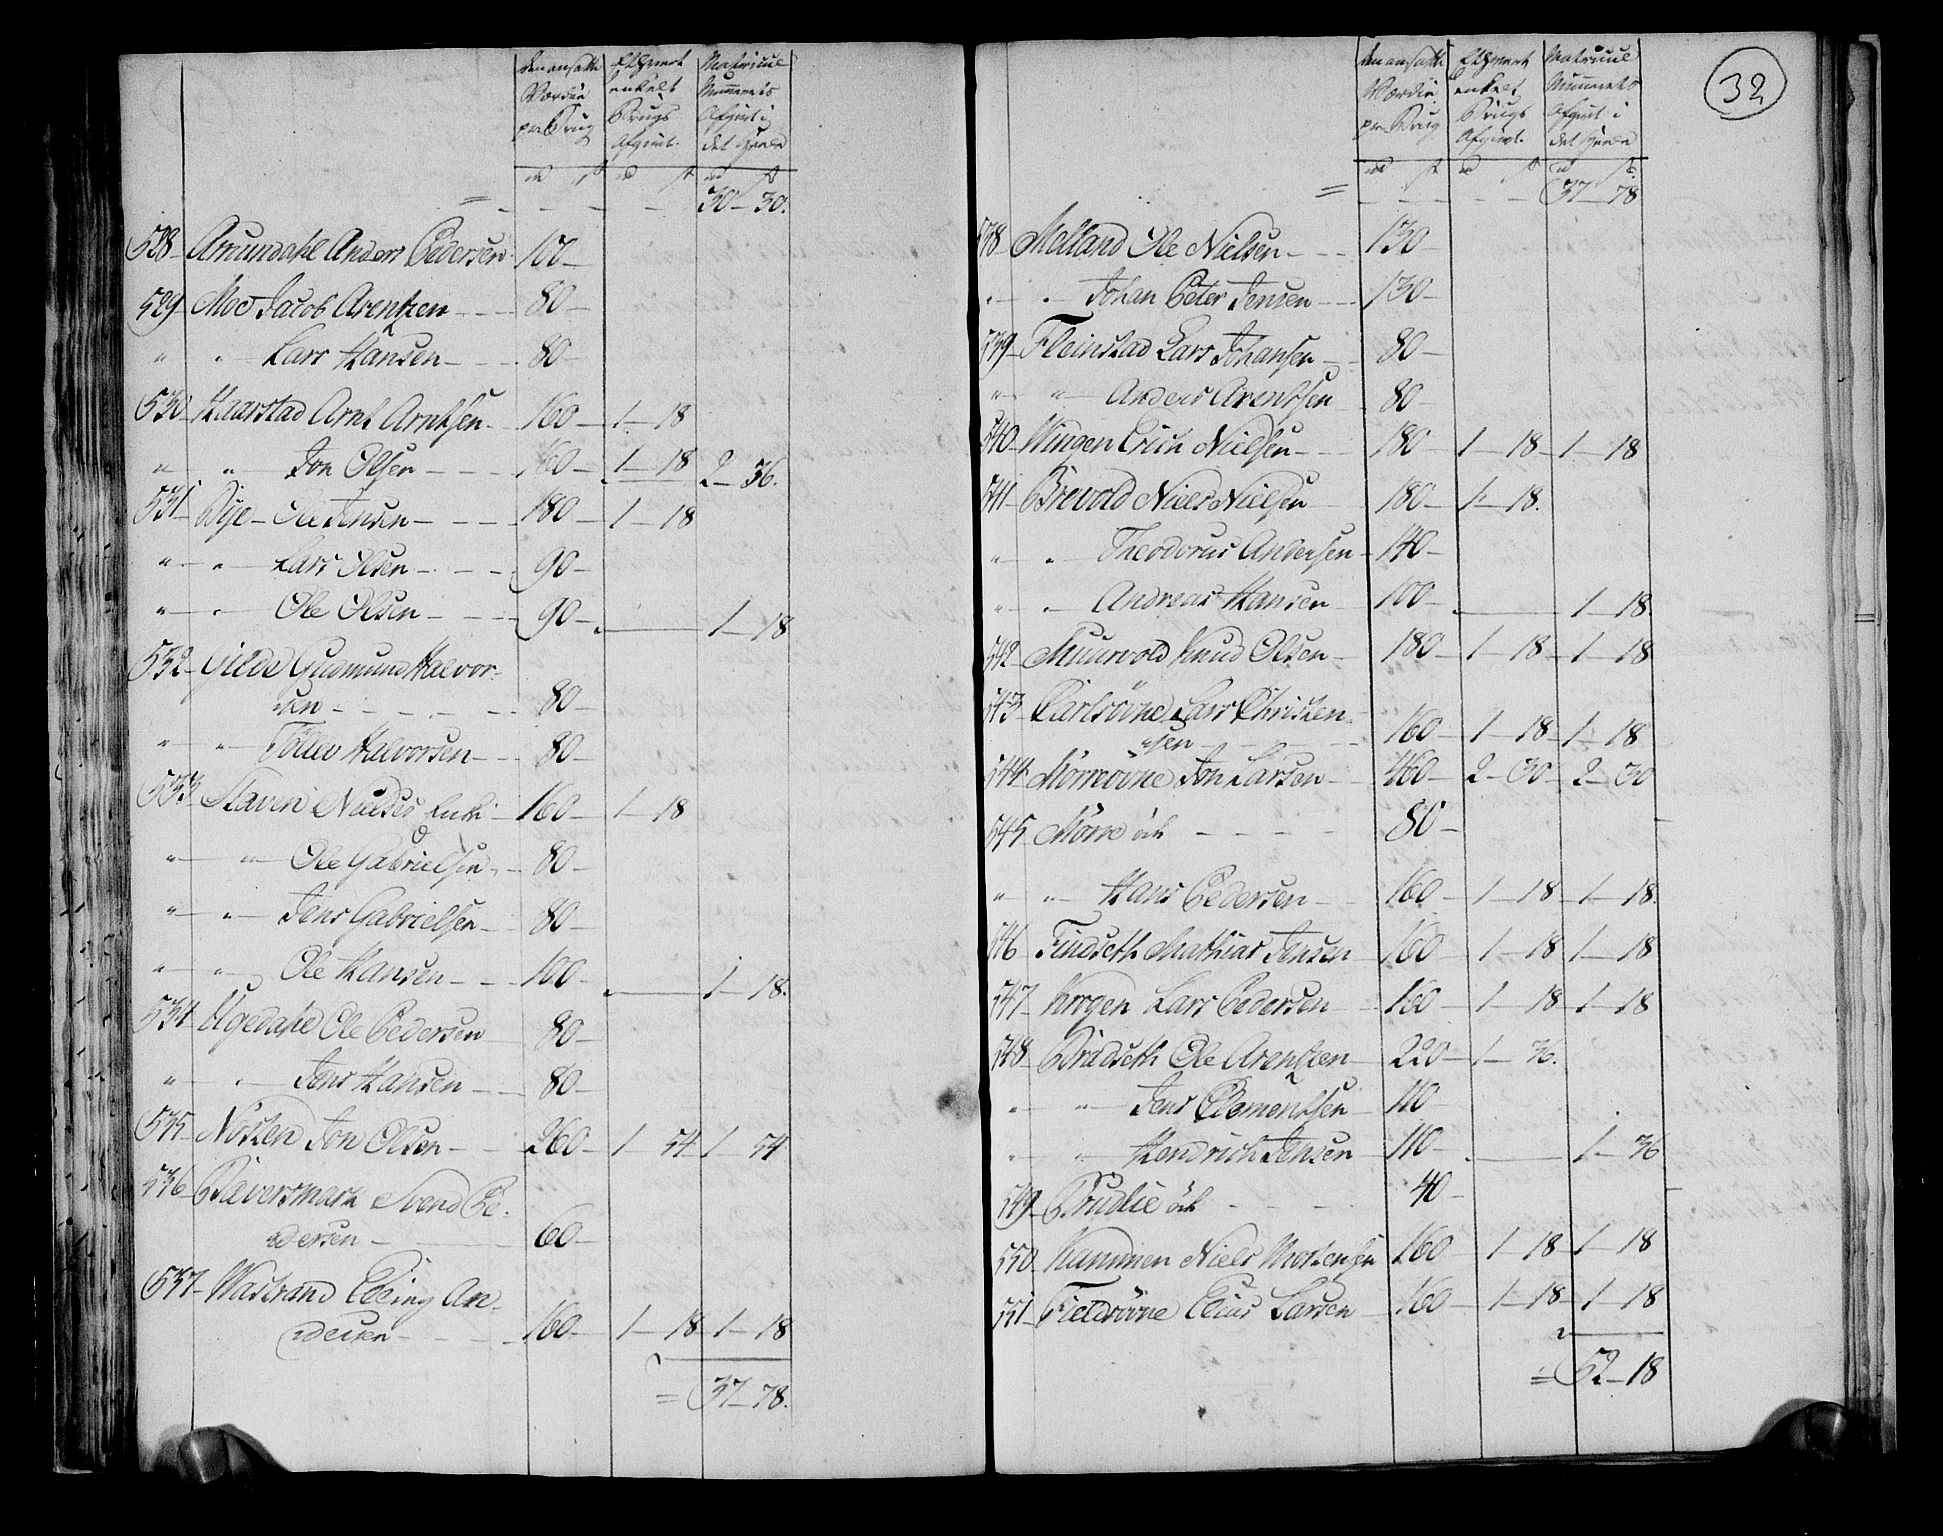 den ansatte Værdie pr Brug
Ethvert enkelt Brugs Afgivt.
Matricul Nummerets Afgivt i det Heele
30 - 30.
528 Amundahl Anders Pedersen 100
529 Moe Jacob Arentzen 80
" " Lars Hansen 80
530 Haarstad Arnt Arntsen 160 1 - 18
" " Jon Olsen 160 1 - 18 2 - 36.
531 Bye Ole Jensen 180 1 - 18
" " Lars Olsen 90
" " Ole Olsen 90 1 - 18
532 Gilde Gudmund Halvor-
sen 80
" " Tollev Halvorsen 80
533 Staven Nielses Enke 160 1 - 18
" " Ole Gabrielsen 80
" " Jens Gabrielsen 80
" " Ole Hansen 100 1 - 18.
534 Ugedahl Ole Pedersen 80
" " Jens Hansen 80
535 Nösten Jon Olsen 260 1 - 54 1 - 54
536 Bæversmark Svend Pe-
dersen 60
537 Wastrand Elling An-
dersen 160 1 - 18 1 - 18
= 37 - 78.
32
den ansatte Værdie pr Brug
Ethvert enkelt Brugs Afgivt.
Matricul Nummerets Afgivt i det Heele
37 - 78
538 Molland Ole Nielsen 130
" " Johan Peter Jensen 130
539 Fleinstad Lars Johansen 80
" " Anders Arentsen 80
540 Wingen Erich Nielsen 180 1 - 18 1 - 18
541 Brevold Niels Nielsen 180 1 - 18.
" " Theodorus Andersen 140
" " Andreas Hansen 100 1 - 18.
542 Muurvold Knud Olsen 180 1 - 18 1 - 18
543 Karlsöine Lars Christen-
sen 160 1 - 18 1 - 18
544 Mörreöine Jon Larsen 460 2 - 30 2 - 30
545 Mörre öde 80
" " Hans Pedersen 160 1 - 18 1 - 18.
546 Findseth Mathias Jensen 160 1 - 18 1 - 18
547 Krogen Lars Pedersen 160 1 - 18 1 - 18
548 Bradseth Ole Arentzen 220 1 - 36.
" " Jens Clementsen 110
" " Hendrich Jensen 110 1 - 36
549 Brudlie öde 40
550 Kammen Niels Mortensen 160 1 - 18 1 - 18
551 Fieldöine Elias Larsen 160 1 - 18 1 - 18
= 52 - 18